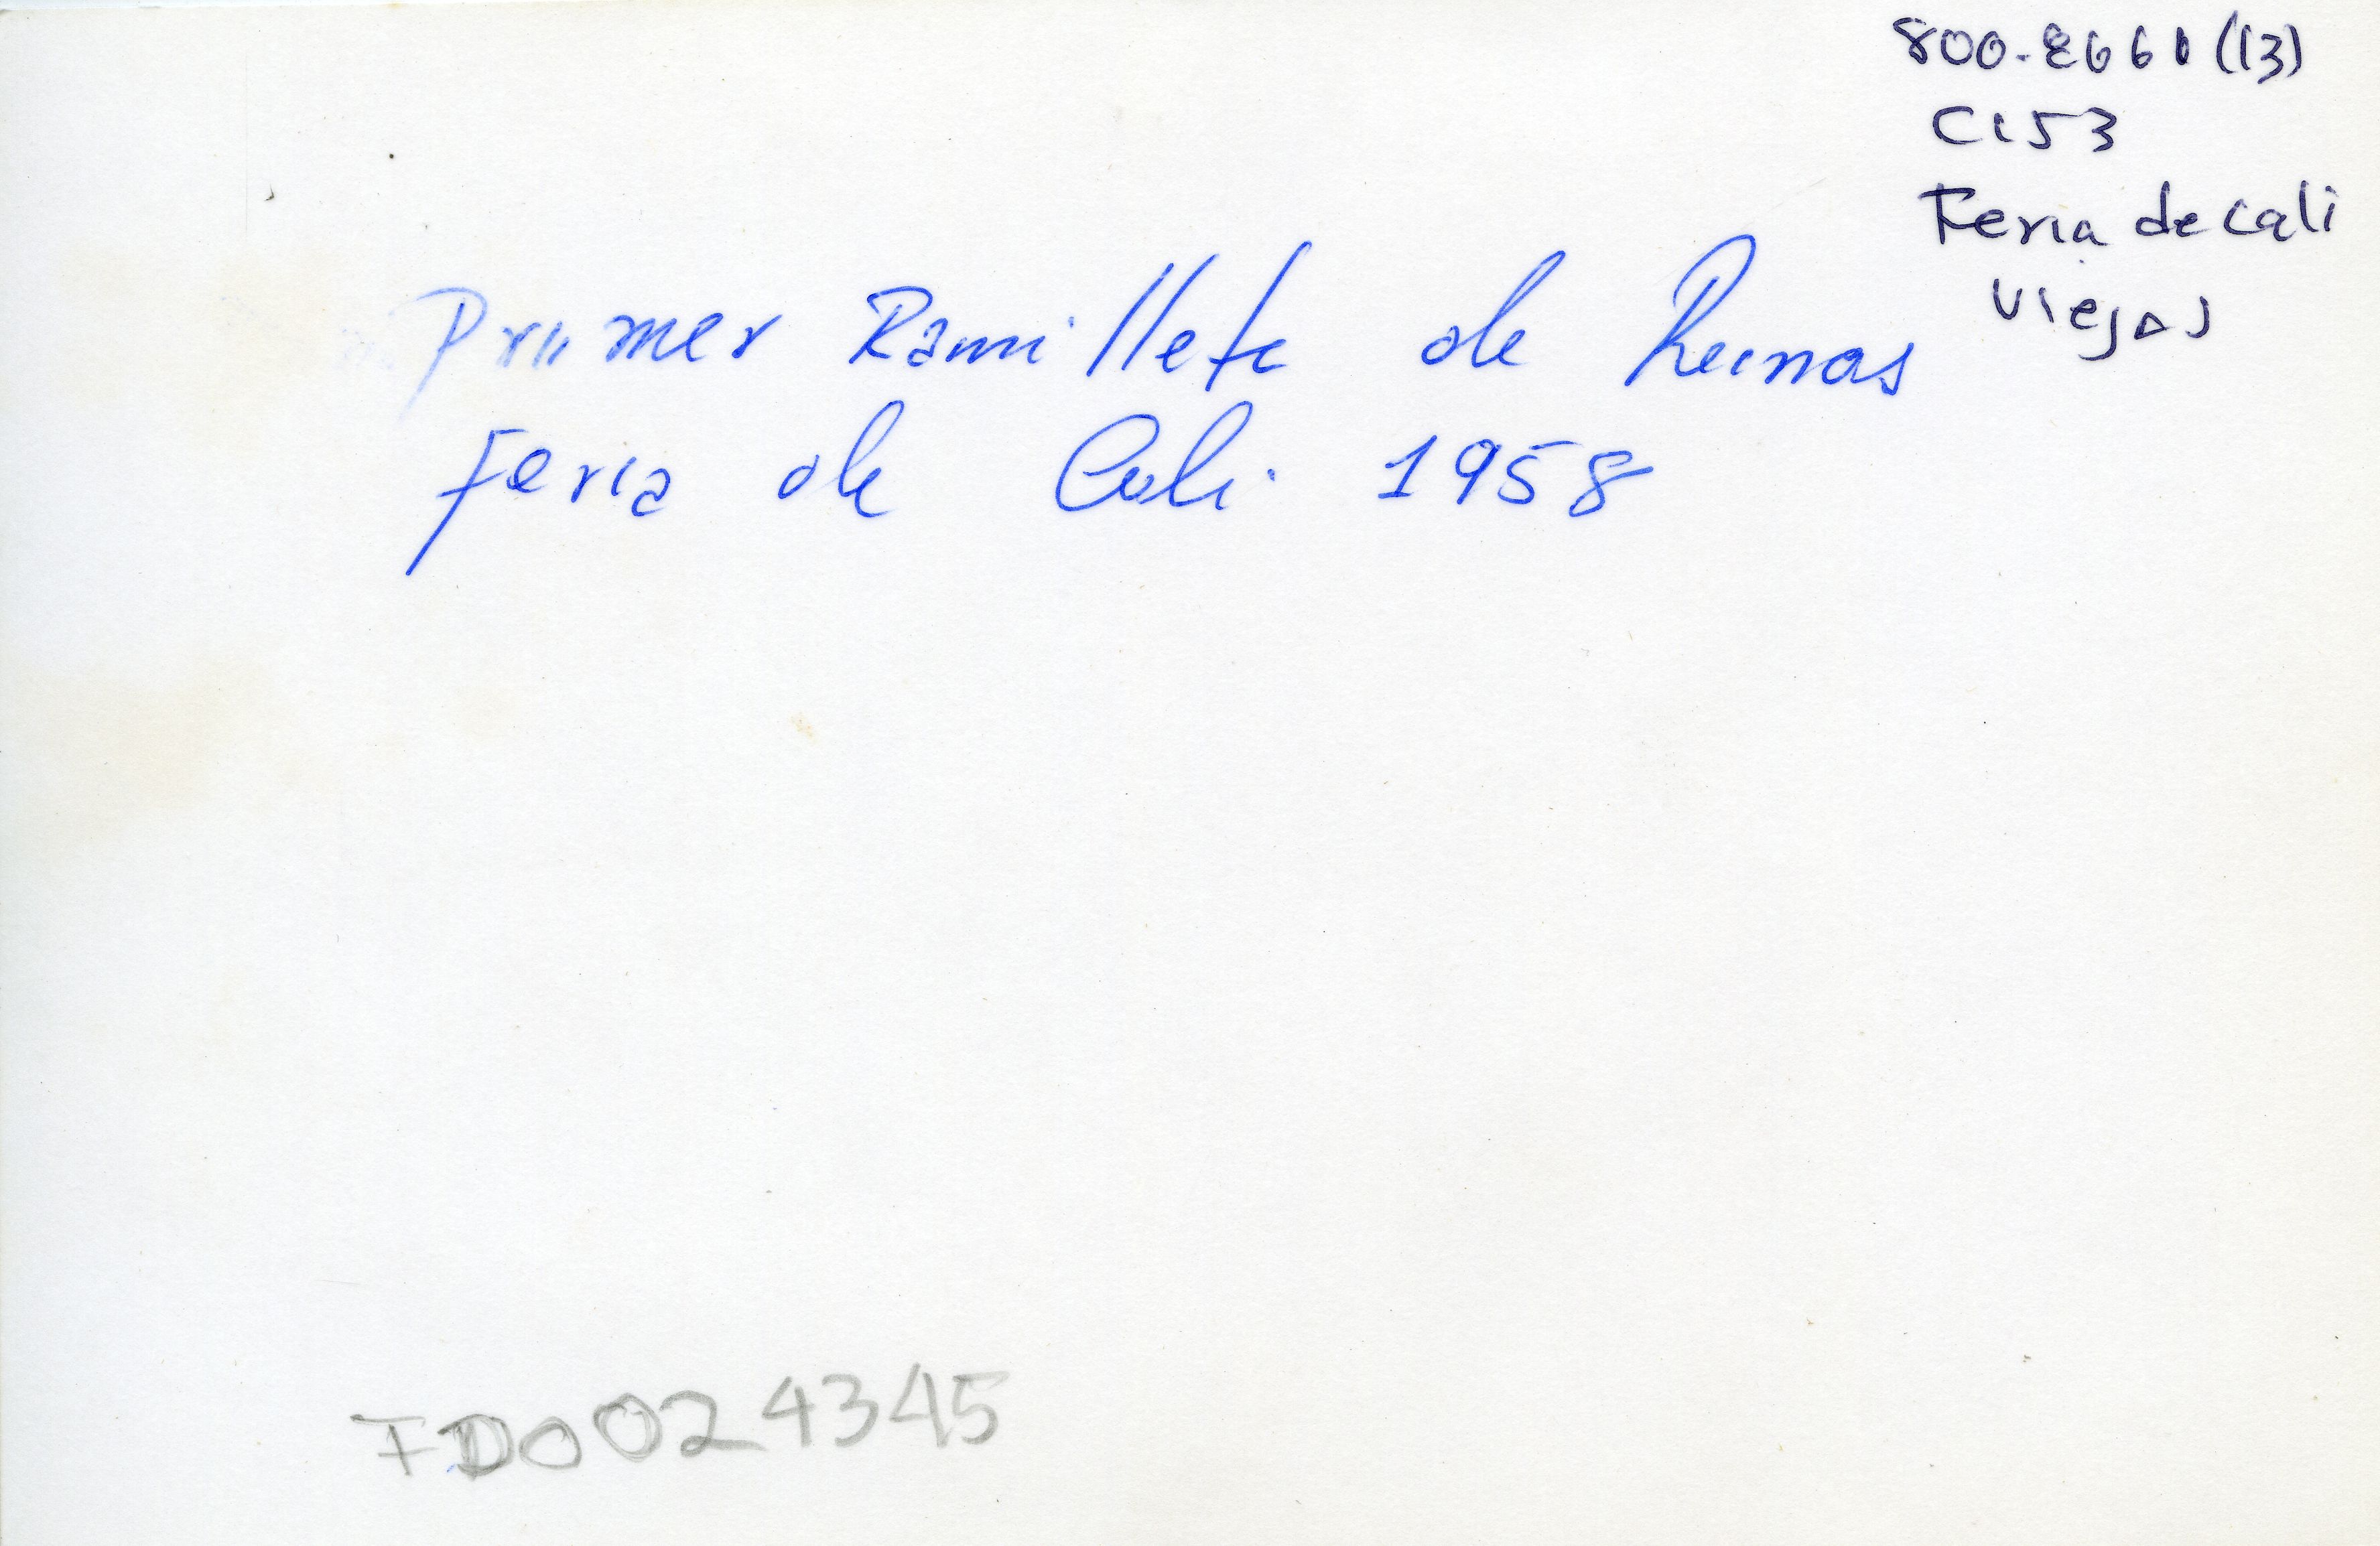 800-2661 (13)
C153
Feria de Cali
Viejas
Primer Ramillete de Reinas
Feria de Cali. 1958
FD0024345